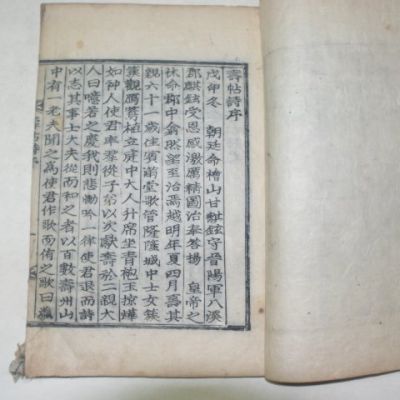 壽帖詩序
戊申冬 朝廷命檜山甘 鉉守晋陽軍八溪
鄭麒鉉受恩感激厲精圖治奉荅揚 皇帝之
休命郡中翕然 至治焉越明年夏四月壽其
親六十一歲 賓滿堂歌管隆隆 中士女簇
觀鴈鶩植立庭中大人升席坐青袍玉 燁
如神人使君率羣從子弟以次獻壽於二親大
人曰噫若之慶我則悲 吟一律使君退而詩
以志其事士大夫從而和之者以百數壽州山
中有一老夫聞之爲使君作歌而侑之歌曰瀛